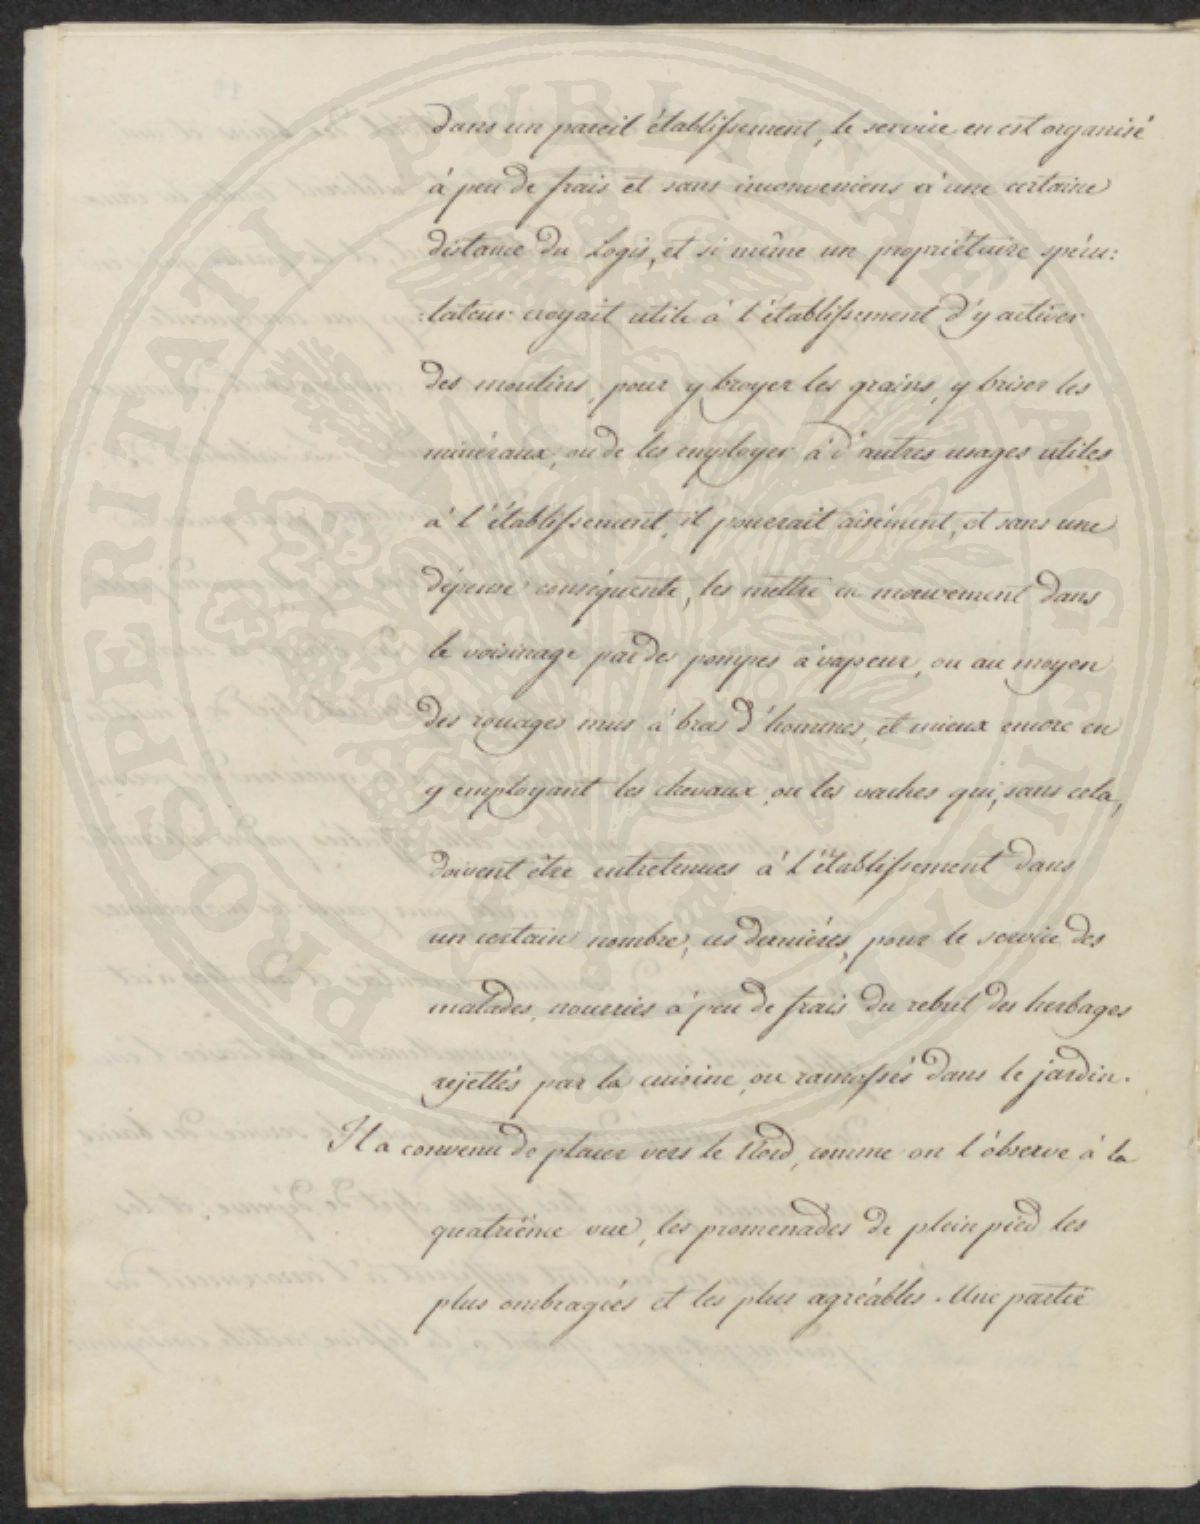 Dans un pareil établissement, le service en est organisé
à peu de frais et sans inconveniens à une certaine
distance du Logis, et si même un propriétaire spécu:
:lateur croyait utile à l'établissement d'y activer
des moulins, pour y broyer les grains, y briser les
minéraux, ou de les employer à d'autres usages utiles
à l'établissement, il pouerait aisément, et sans une
dépense conséquente, les mettre en mouvement dans
le voisinage par des pompes à vapeur, ou au moyen
des rouages mus à bras d'hommes, et mieux encore en
y employant les chevaux, ou les vaches qui, sans cela,
doivent être entretenues à l'établissement dans
un certain nombre, ces dernières, pour le service des
malades, nourries à peu de frais du rebut des herbages
rejettés par la cuisine, ou ramassés dans le jardin.
Il a convenu de placer vers le Nord, comme on l'observe à la
quatrième vue, les promenades de plein pied les
plus ombragées et les plus agréables. Une partie
PROSPERITATI PVBLICAE AVGENDAE